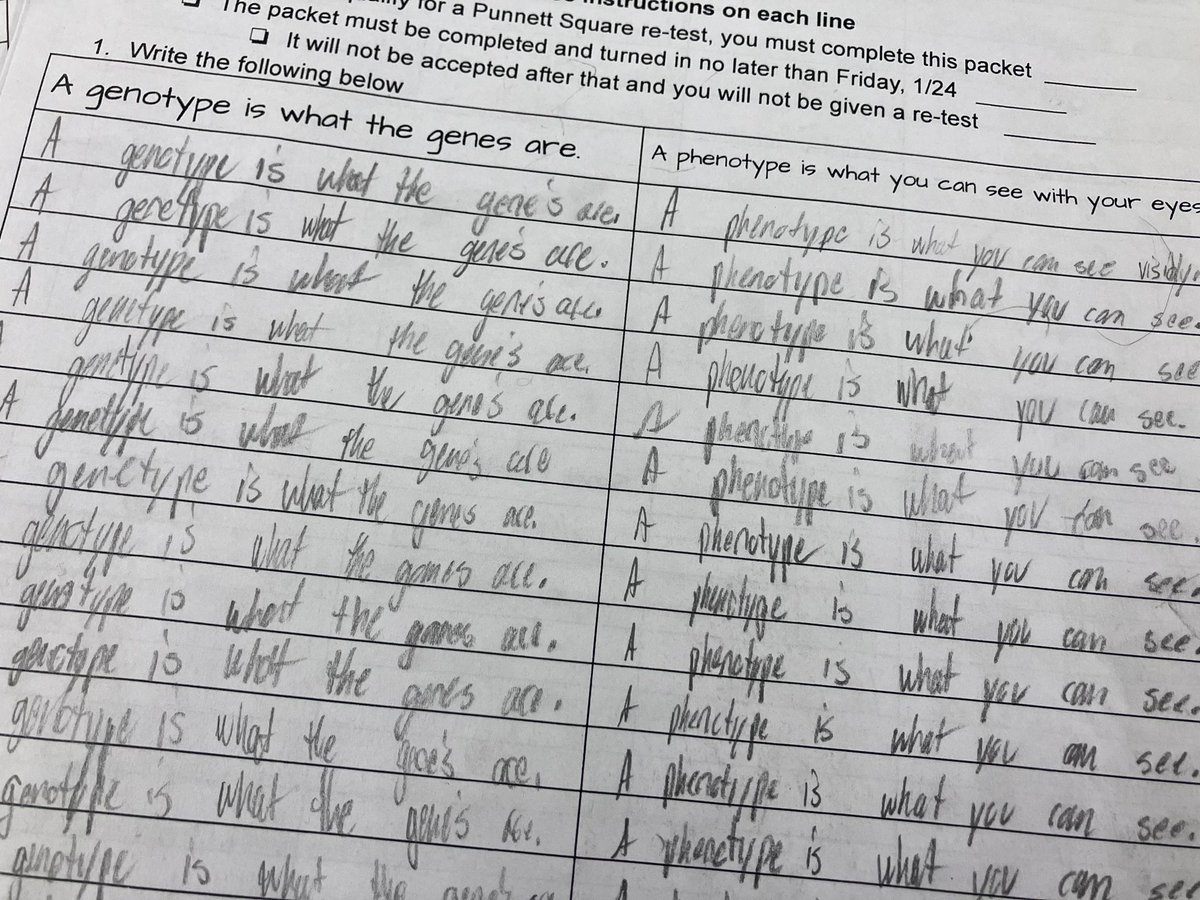 on each line
for a Punnett Square re-test, you must complete this packet
The packet must be completed and turned in no later than Friday, 1/24
It will not be accepted after that and you will not be given a re-test
1. Write the following below
A genotype is what the genes are.
A genotype is what the gene's are.
A genetype is what the gene's are.
A genotype is what the gene's are.
A genotype is what the gene's are.
genotype is what the gene's are.
A genotype is what the gene's are
genetype is what the genes are.
genotype is what the genes are.
genotype is what the genes are.
genotype is what the genes are.
genotype is what the gene's are.
genotype is what the gene's are.
genotype is what the
A phenotype is what you can see with your eyes
A phenotype is what you can see visibly
A phenotype is what you can see.
A phenotype is what you can see
A phenotype is what you can see.
A phenotype is what you can see
A phenotype is what you can see.
A phenotype is what you can see.
A phenotype is what you can see.
A phenotype is what you can see.
A phenotype is what you can see.
A phenotype is what you can see.
A phenotype is what you can see